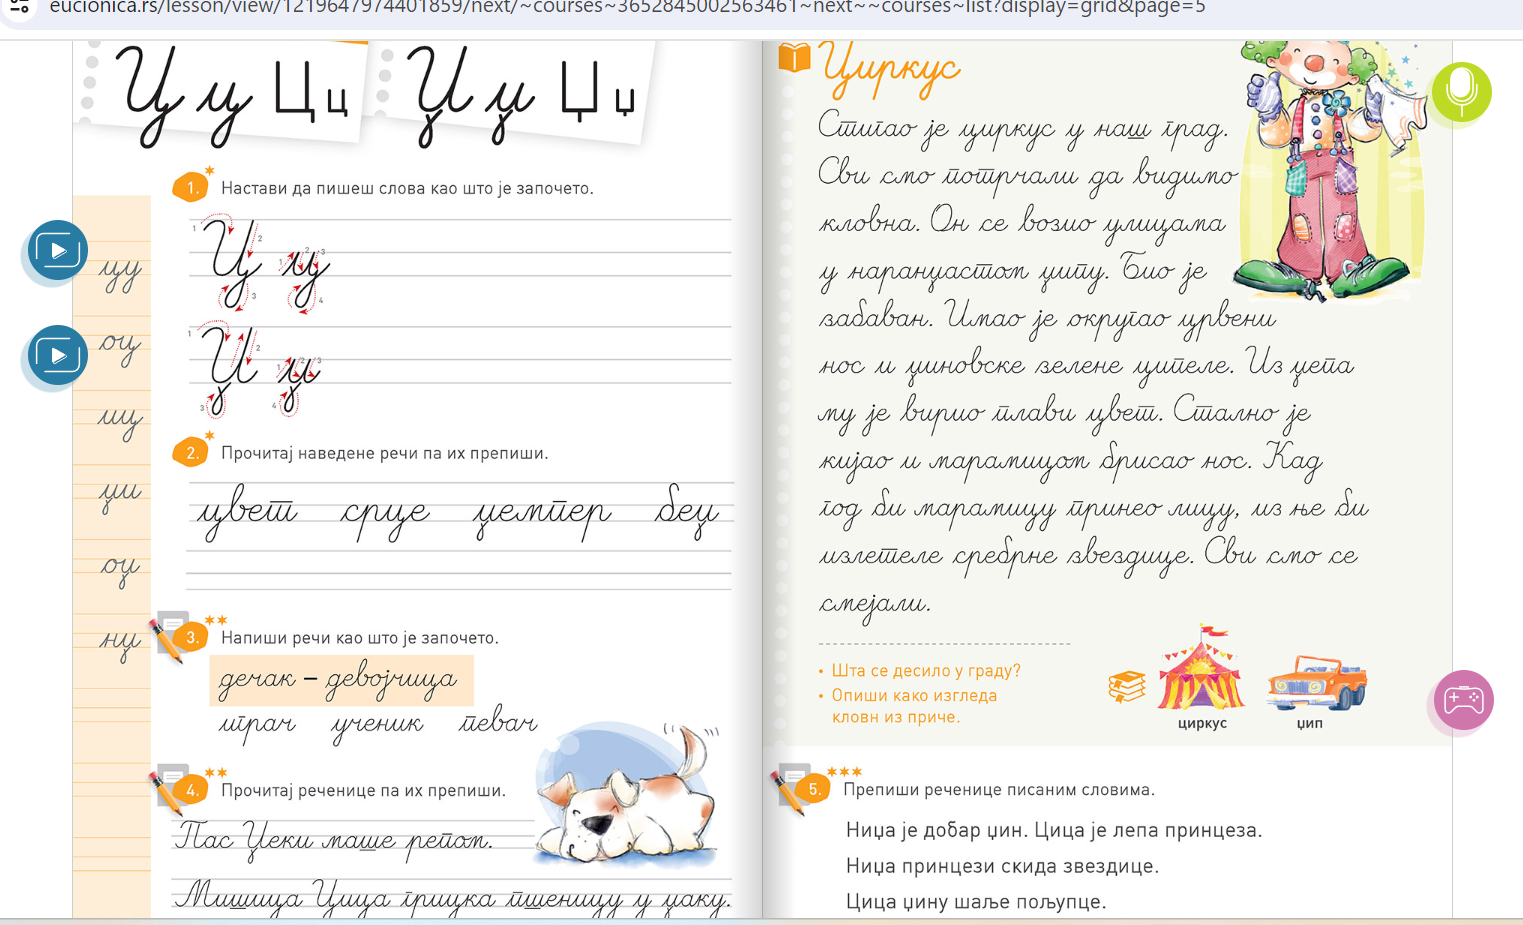 eucionica.rs/lesson/view/1219647974401859/next/~courses~3652845002563461~next~~courses~list?display=grid&page=5
Ц ц Ц ц Џ џ Џ џ
1. Настави да пишеш слова као што је започето.
Ц ц
Џ џ
цу
оц
иц
џи
оџ
нџ
2. Прочитај наведене речи па их препиши.
цвет срце џемпер беџ
3. Напиши речи као што је започето.
дечак – девојчица
играч ученик певач
4. Прочитај реченице па их препиши.
Пас Џеки маше репом.
Мишица Цица грицка пшеницу у џаку.
Циркус
Стигао је циркус у наш град.
Сви смо потрчали да видимо
кловна. Он се возио улицама
у наранџастом џипу. Био је
забаван. Имао је округао црвени
нос и џиновске зелене ципеле. Из џепа
му је вирио плави цвет. Стално је
кијао и марамицом брисао нос. Кад
год би марамицу принео лицу, из ње би
излетеле сребрне звездице. Сви смо се
смејали.
• Шта се десило у граду?
• Опиши како изгледа
кловн из приче.
циркус
џип
5. Препиши реченице писаним словима.
Ниџа је добар џин. Цица је лепа принцеза.
Ниџа принцези скида звездице.
Цица џину шаље пољупце.